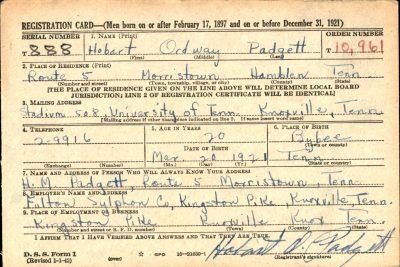 REGISTRATION CARD—(Men born on or after February 17, 1897 and on or before December 31, 1921)
SERIAL NUMBER 1. NAME (Print) ORDER NUMBER
888 Hobart Ordway Padgett 10,961
(First) (Middle) (Last)
2. PLACE OF RESIDENCE (Print)
Route 5 Morristown Hamblen Tenn
(Number and street) (Town, township, village, or city) (County) (State)
[THE PLACE OF RESIDENCE GIVEN ON THE LINE ABOVE WILL DETERMINE LOCAL BOARD
JURISDICTION; LINE 2 OF REGISTRATION CERTIFICATE WILL BE IDENTICAL]
3. MAILING ADDRESS
Stadium 508, University of Tenn. Knoxville, Tenn
[Mailing address if other than place indicated on line 2. If same insert word same]
4. TELEPHONE 5. AGE IN YEARS 6. PLACE OF BIRTH
2-9916 20 Bybee
DATE OF BIRTH (Town or county)
Mar. 20 1921 Tenn
(Exchange) (Number) (Mo.) (Day) (Yr.) (State or country)
7. NAME AND ADDRESS OF PERSON WHO WILL ALWAYS KNOW YOUR ADDRESS
H. M. Padgett Route 5 Morristown, Tenn.
8. EMPLOYER'S NAME AND ADDRESS
Fulton Sylphon Co, Kingston Pike Knoxville, Tenn.
9. PLACE OF EMPLOYMENT OR BUSINESS
Kingston Pike Knoxville Knox Tenn.
(Number and street or R. F. D. number) (Town) (County) (State)
I AFFIRM THAT I HAVE VERIFIED ABOVE ANSWERS AND THAT THEY ARE TRUE.
D. S. S. Form 1 (over) GPO Hobart O. Padgett
(Revised 1-1-42) (Registrant's signature)